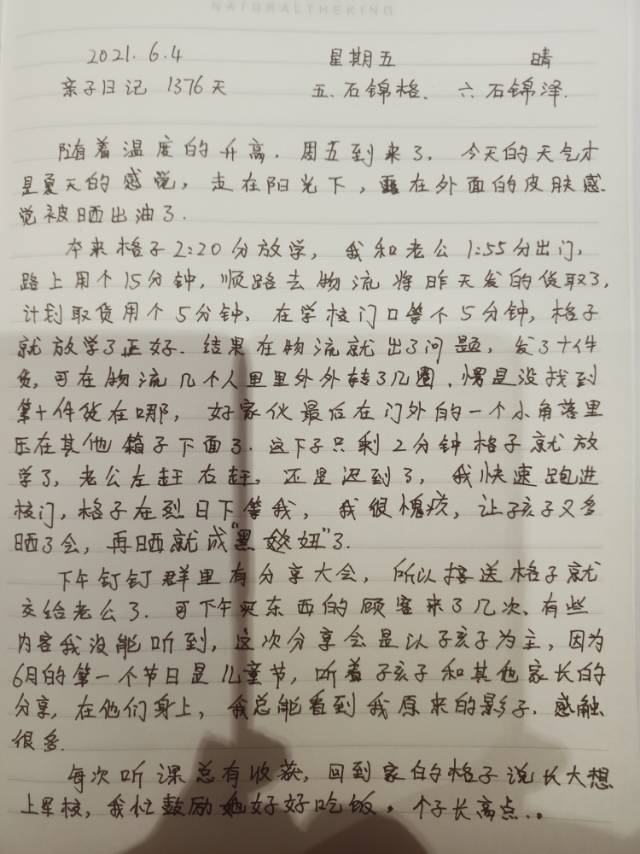 NATURALTHEKING
2021.6.4 星期五 晴
亲子日记 1376天 五.石锦格. 六石锦泽.
随着温度的升高.周五到来了.今天的天气才
是夏天的感觉,走在阳光下,露在外面的皮肤感
觉被晒出油了.
本来格子2:20分放学,我和老公1:55分出门,
路上用个15分钟,顺路去物流将昨天发的货取了,
计划取货用个5分钟,在学校门口等个5分钟,格子
就放学了正好.结果在物流就出了问题,发了十件
货,可在物流几个人里里外外转了几圈,愣是没找到
第十件货在哪,好家伙最后在门外的一个小角落里
压在其他箱子下面了.这下子只剩2分钟格子就放
学了,老公左赶右赶,还是迟到了,我快速跑进
校门,格子在烈日下等我,我很愧疚,让子孩子又多
晒了会,再晒就成"黑妞"了.
下午钉钉群里有分享大会,所以接送格子就
交给老公了.可下午买东西的顾客来了几次,有些
内容我没能听到,这次分享会是以子孩子为主,因为
6月的第一个节日是儿童节,听着子孩子和其他家长的
分享,在他们身上,我总能看到我原来的影子.感触
很多.
每次听课总有收获,回到家的格子说长大想
上军校,我忙鼓励她好好吃饭,个子长高点..